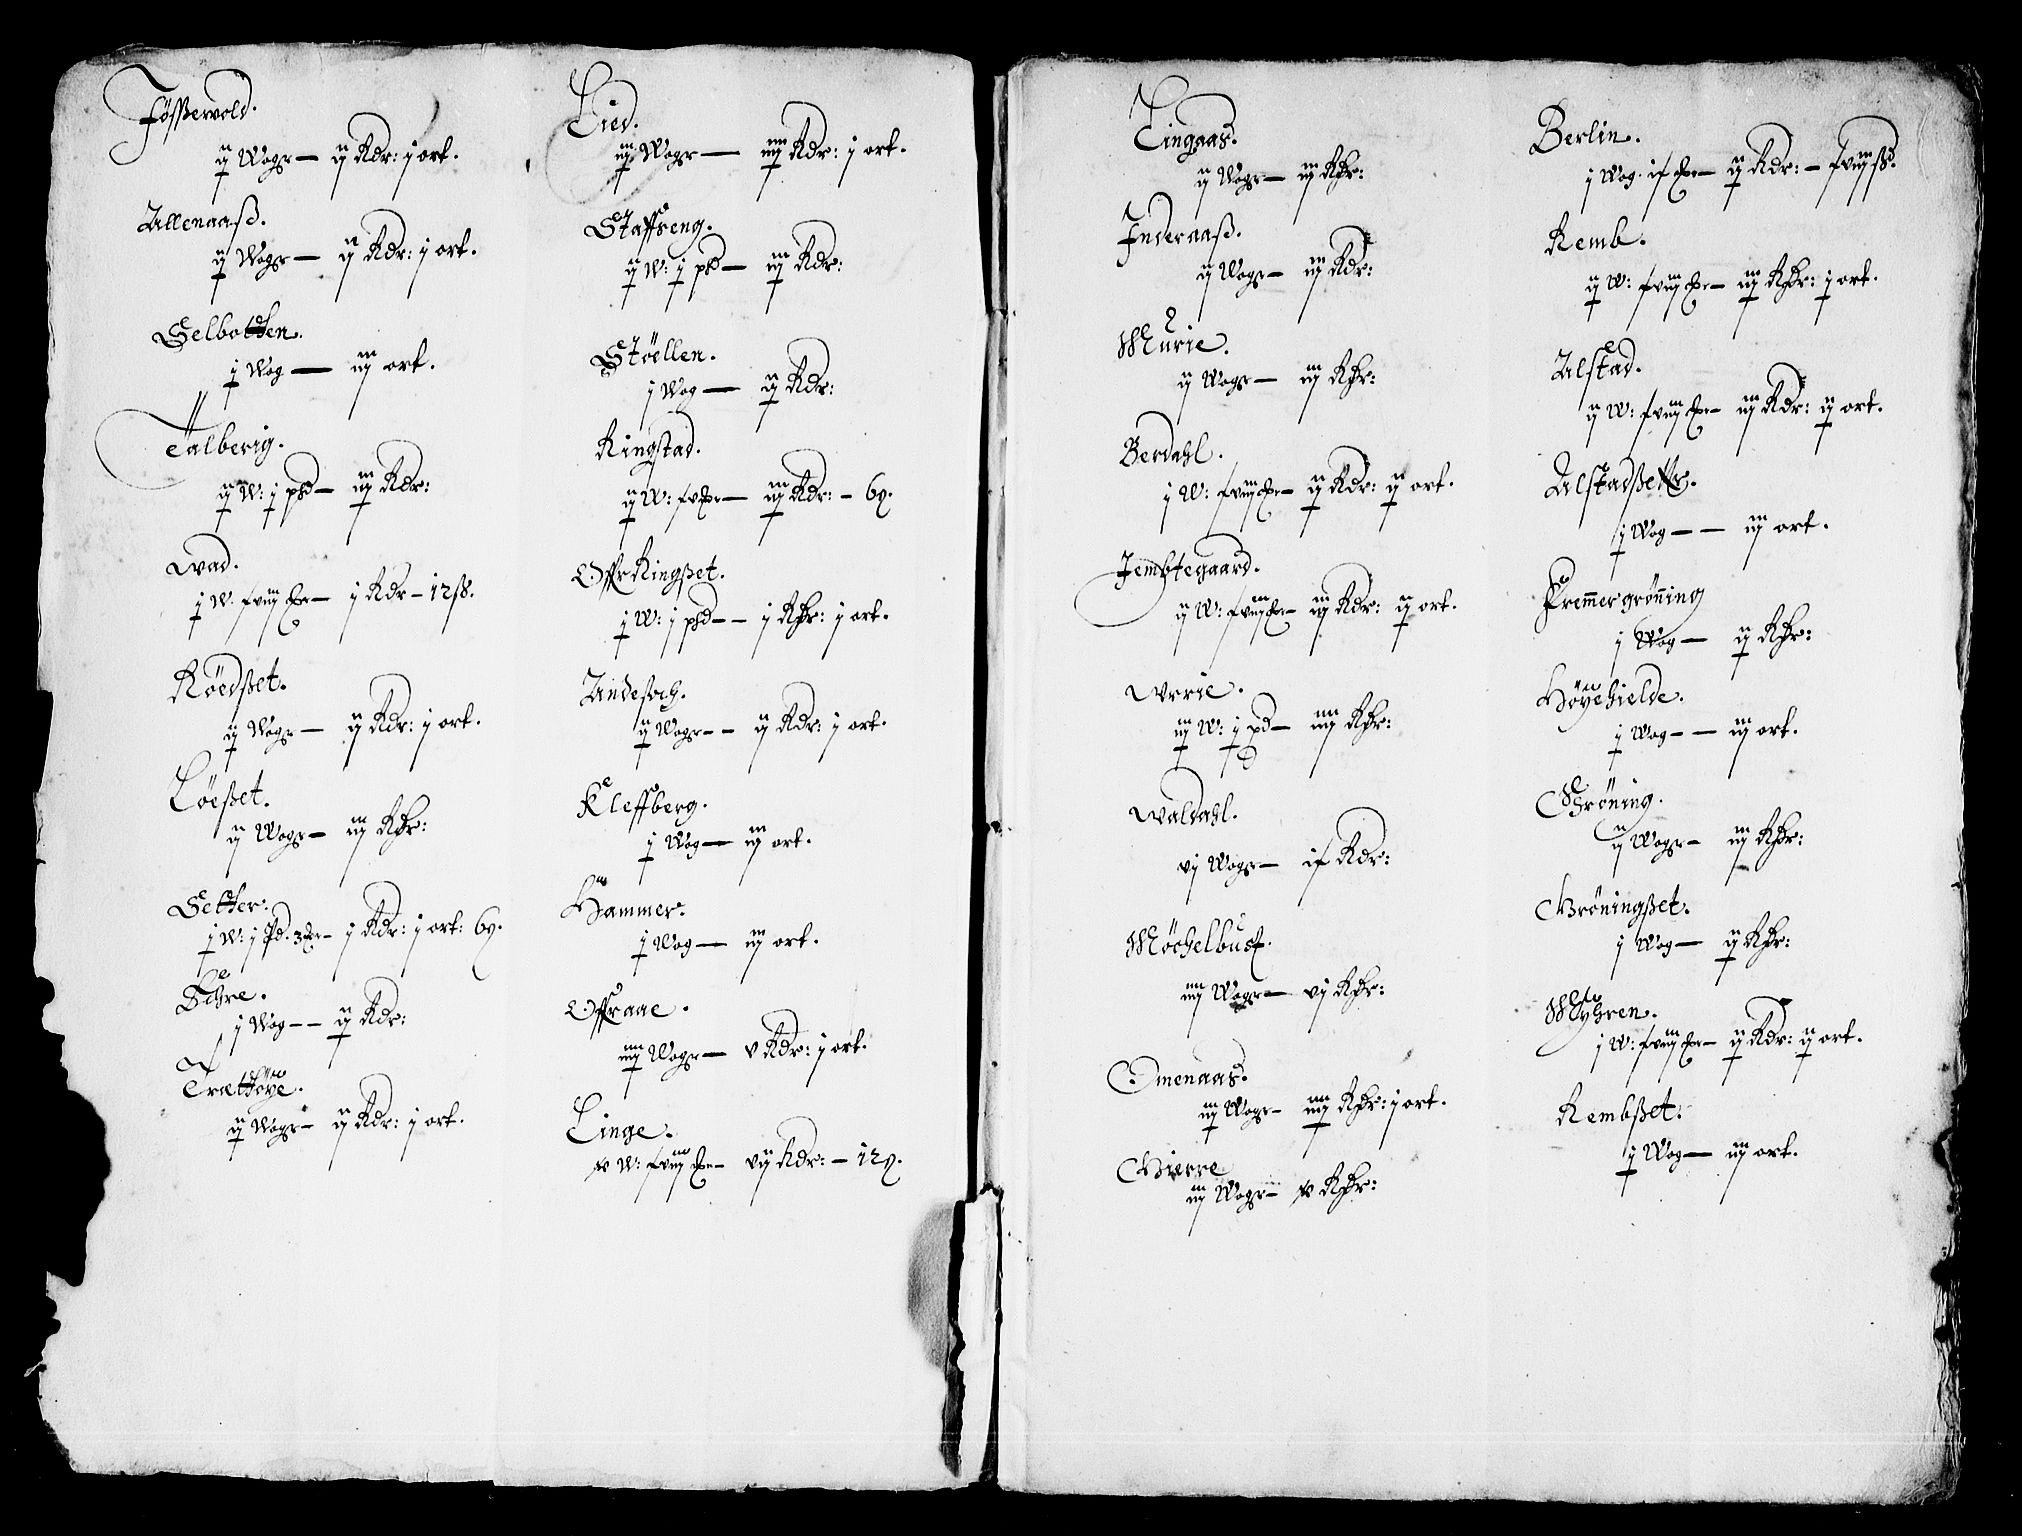 Fösserwold.
ij Wogr — ij Rdr: j ort.
Allenaaß.
ij Wogr — ij Rdr: j ort.
Selbotthen.
j Wog — iij ort.
Talberig.
ij W: j pd — iij Rdr:
Wad.
j W. j Rdr — 12 ß.
Röedßet.
ij Wogr — ij Rdr: j ort.
Löeßet.
ij Wogr — iij Rdr:
Setter:
j W: j Pd. — j Rdr: j ort: 6
j Wog — — ij Rdr:
Trættöye.
ij Wogr — ij Rdr: j ort.
Lied.
iij Wogr — iiij Rdr: j ort.
Staffseng.
ij W: j pd — iij Rdr:
Stöellen.
j Wog — ij Rdr:
Ringstad.
ij W: — iij Rdr: — 6
Offr Ringßet.
j W: j pd — — j Rdr: j ort.
Andesoch.
ij Wogr — — ij Rdr: j ort.
Kleffberg.
j Wog — iij ort.
Hammer.
j Wog — iij ort.
Offraae.
iiij Wogr — v Rdr: j ort.
Linge.
W: — vij Rdr: — 12
Lingaas.
ij Wogr — iij Rdr:
Inderaaß.
ij Wogr — iij Rdr:
Murie.
ij Wogr — iij Rdr:
Berdahl.
j W: — ij Rdr: ij ort.
Jembtegaard.
ij W: — iij Rdr: ij ort.
Wrrie.
iij W: j pd — iiij Rdr:
Waldahl.
vj Wogr — Rdr:
Möchelbust.
iiij Wogr — vj Rdr:
Omenaas.
iij Wogr — iiij Rdr: j ort.
Gierre
iij Wogr — Rdr:
Berlin.
j Wog. — ij Rdr: — ß.
Remb.
ij W: — iij Rdr: j ort.
Alstad.
ij W: — iij Rdr: ij ort.
Alstadßettr.
j Wog — — iij ort.
Fremmergröning
j Wog — ij Rdr:
Höyehielde.
j Wog — — iij ort.
Gröning.
ij Wogr — iij Rdr:
Gröningßet.
j Wog — ij Rdr:
Myhren.
j W: — ij Rdr: ij ort.
Rembßet:
j Wog — iij ort.